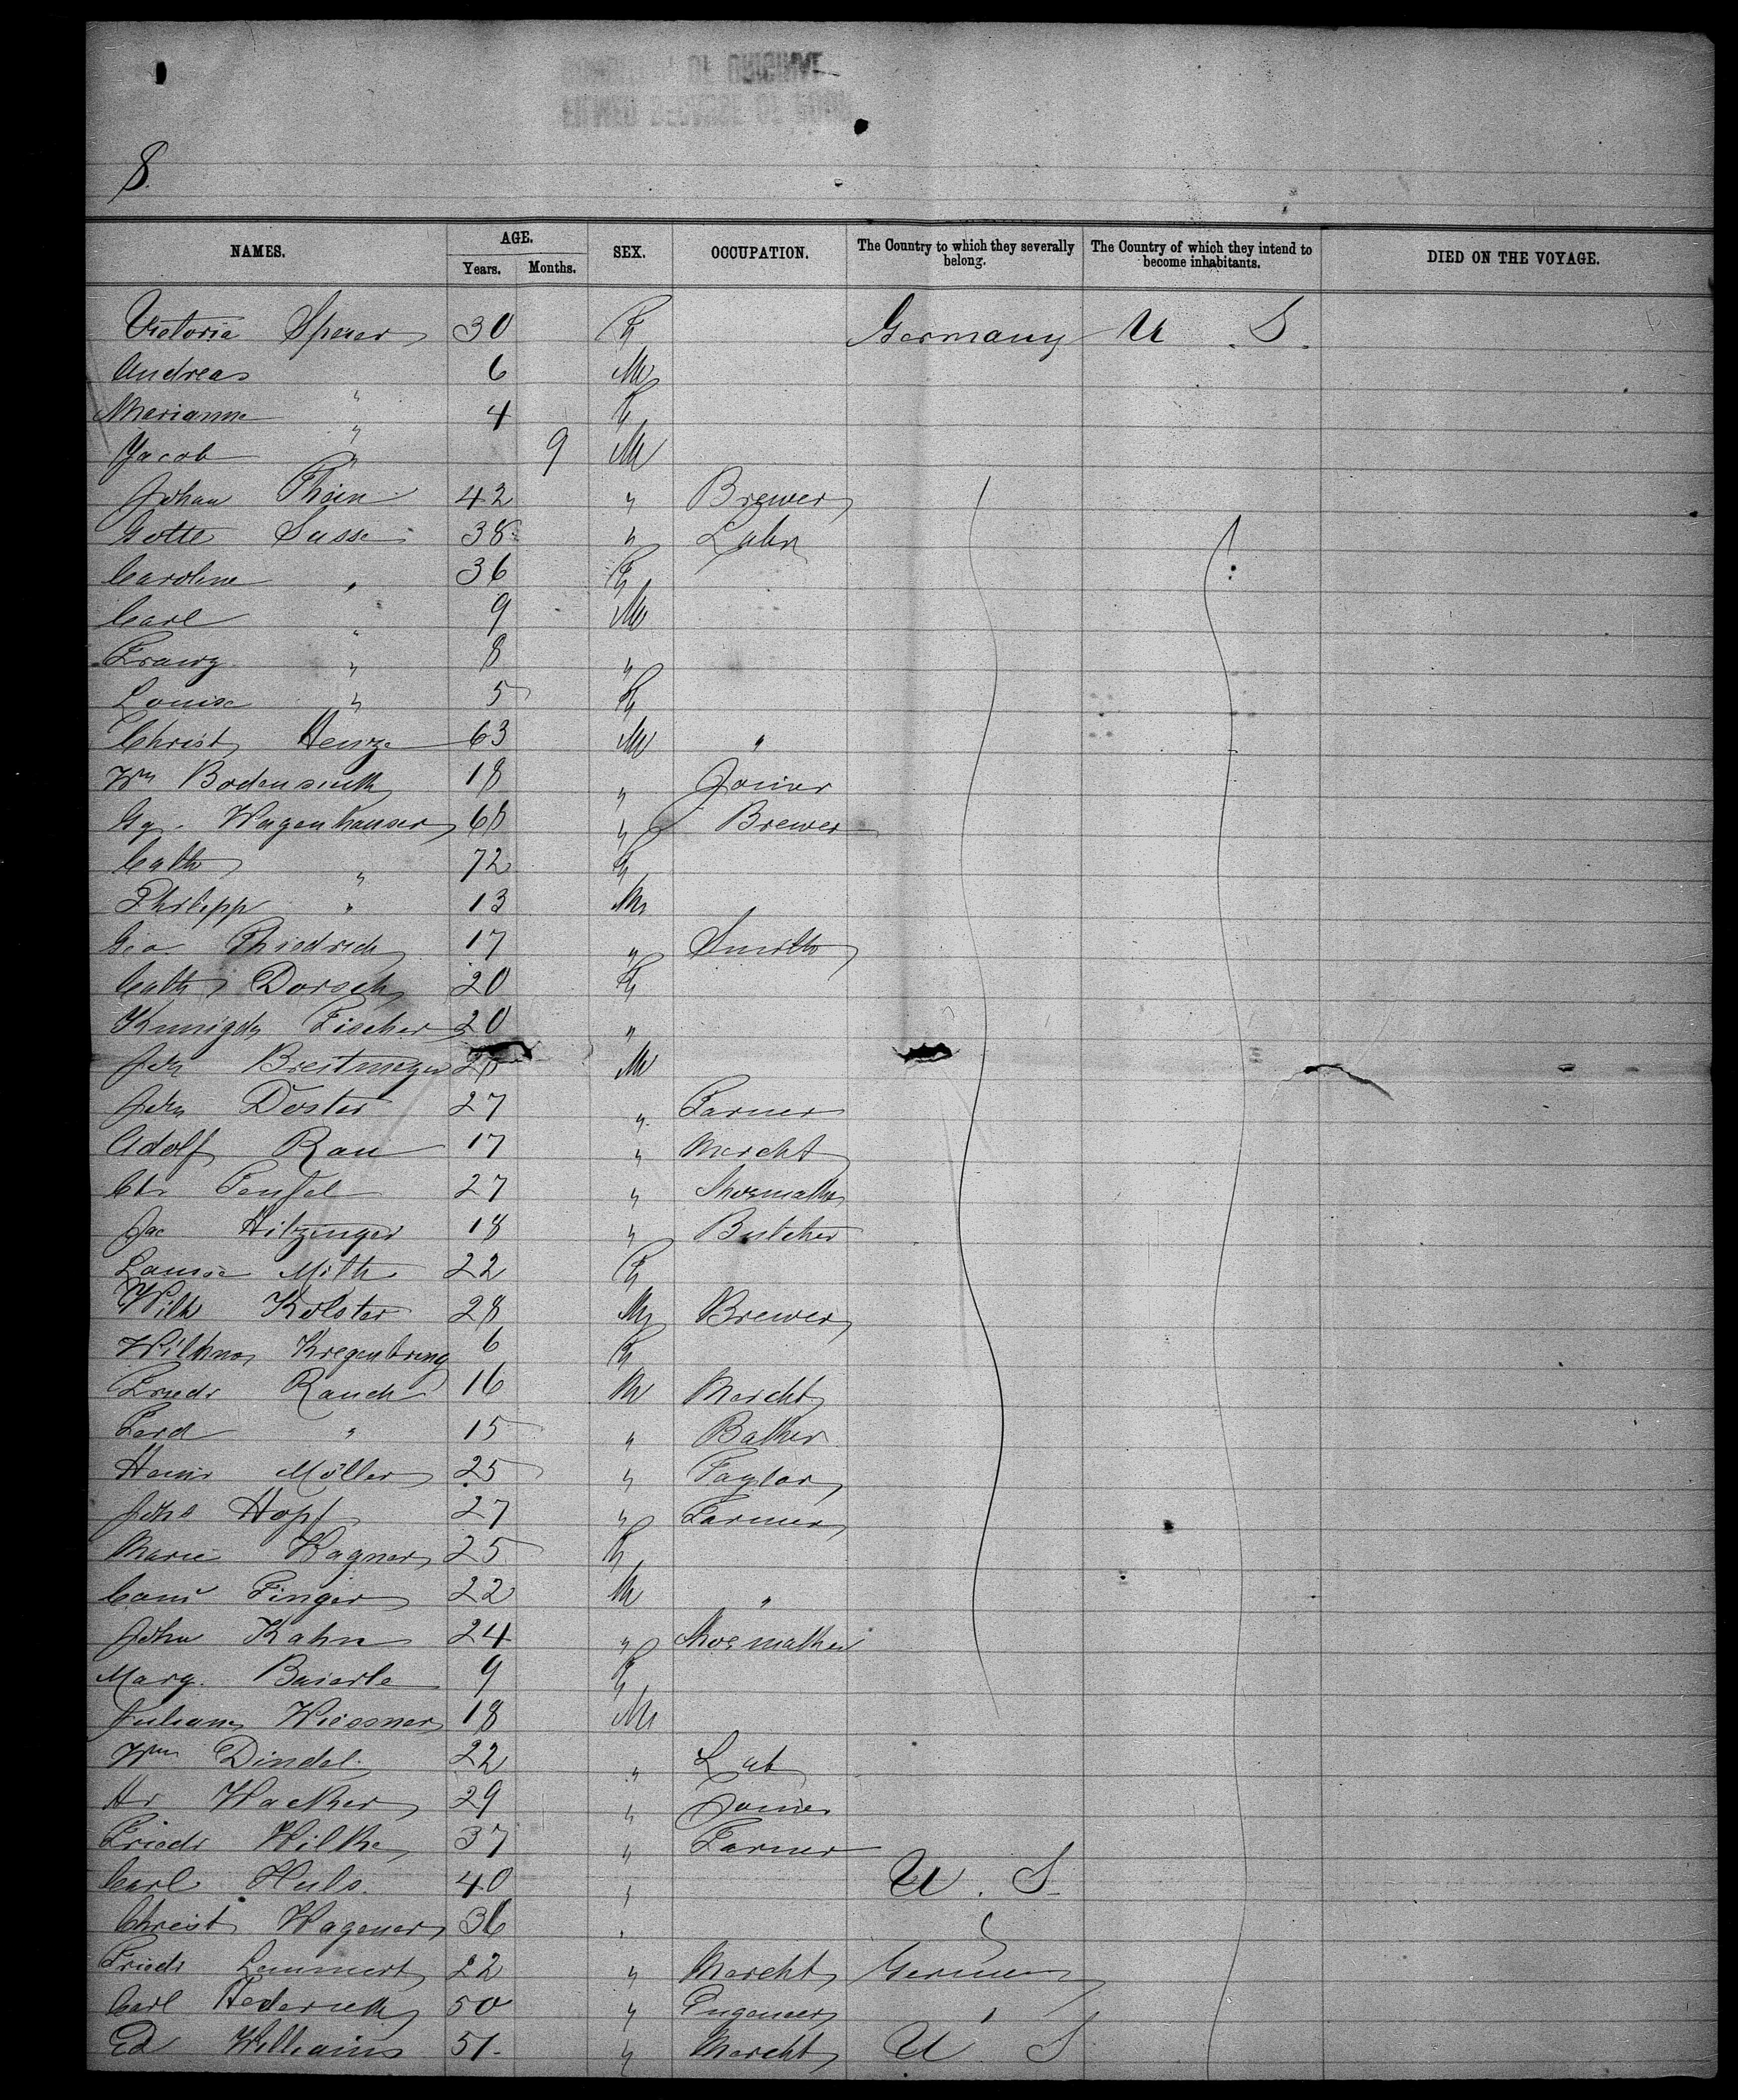 8.
NAMES. AGE. SEX. OCCUPATION. The Country to which they severally belong. The Country of which they intend to become inhabitants. DIED ON THE VOYAGE.
Years. Months.
Victoria Sperer 30 F Germany U. S.
Andreas " 6 M
Marianne " 4 F
Jacob " 9 M
Johan Thein 42 " Brewer
Gotte Susse 38 "
Caroline " 36 F
Carl " 9 M
Franz " 8 "
Louise " 5 F
Christ Henze 63 M "
Wm 18 " Joiner
Gg. Wagenhauser 68 " Brewer
Cath " 72 F
Philipp " 13 M
Geo. 17 " Smith
Cath Dorsch 20 F
Kunigde Fischer 20 "
Joh Breitmeyer M
Joh Doster 27 " Farmer
Adolf Rau 17 " Mercht
Chr Teufel 27 " Shoemaker
Jac Hitzinger 18 " Butcher
Louise Milth 22 F
Wilh Kolster 28 M Brewer
6 F
Friedr Rauch 16 M Mercht
Ferd " 15 " Baker
Heinr Möller 25 " Taylor
Johs Hopf 27 " Farmer
Marie Wagner 25 F
Finger 22 M "
John Kahn 24 " Shoemaker
Marg. Baierle 9 F
Wiessner 18 M
Wm Dindel 22 " Lab
Hr Wacker 29 " Joiner
Friedr Wilke 37 " Farmer
Carl Huls 40 " U. S.
Christ Wagener 36 "
Friedr Lammert 22 " Mercht Germany
Carl 50 " Engeneer "
Ed Williams 51 " Mercht U. S